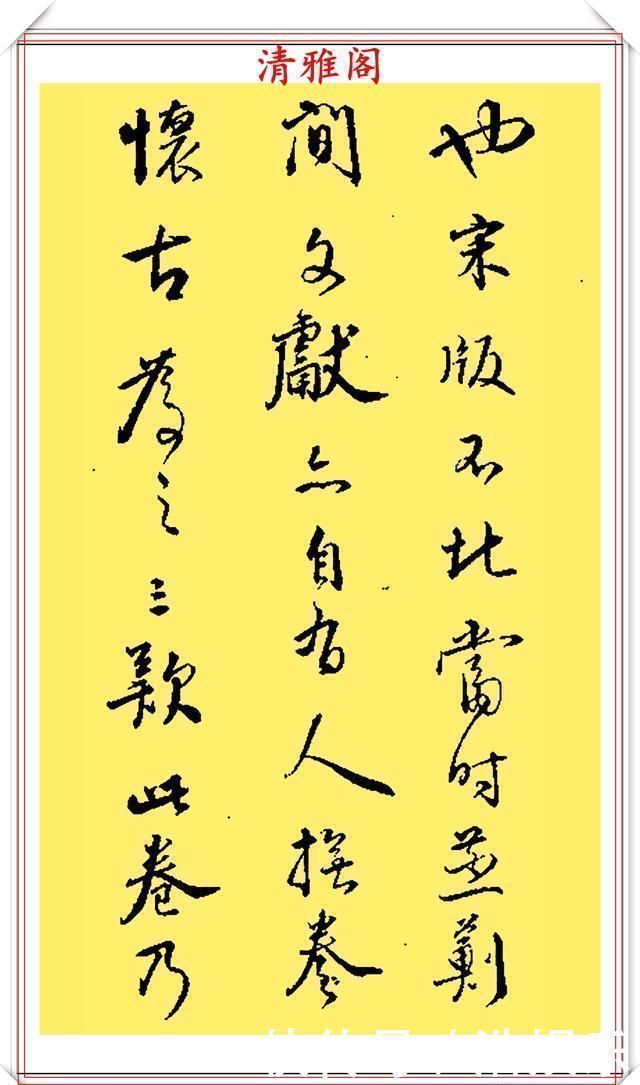 清雅阁
也宋版不北當時燕薊
間文獻亦自有人撫卷
懷古為之三歎此卷乃